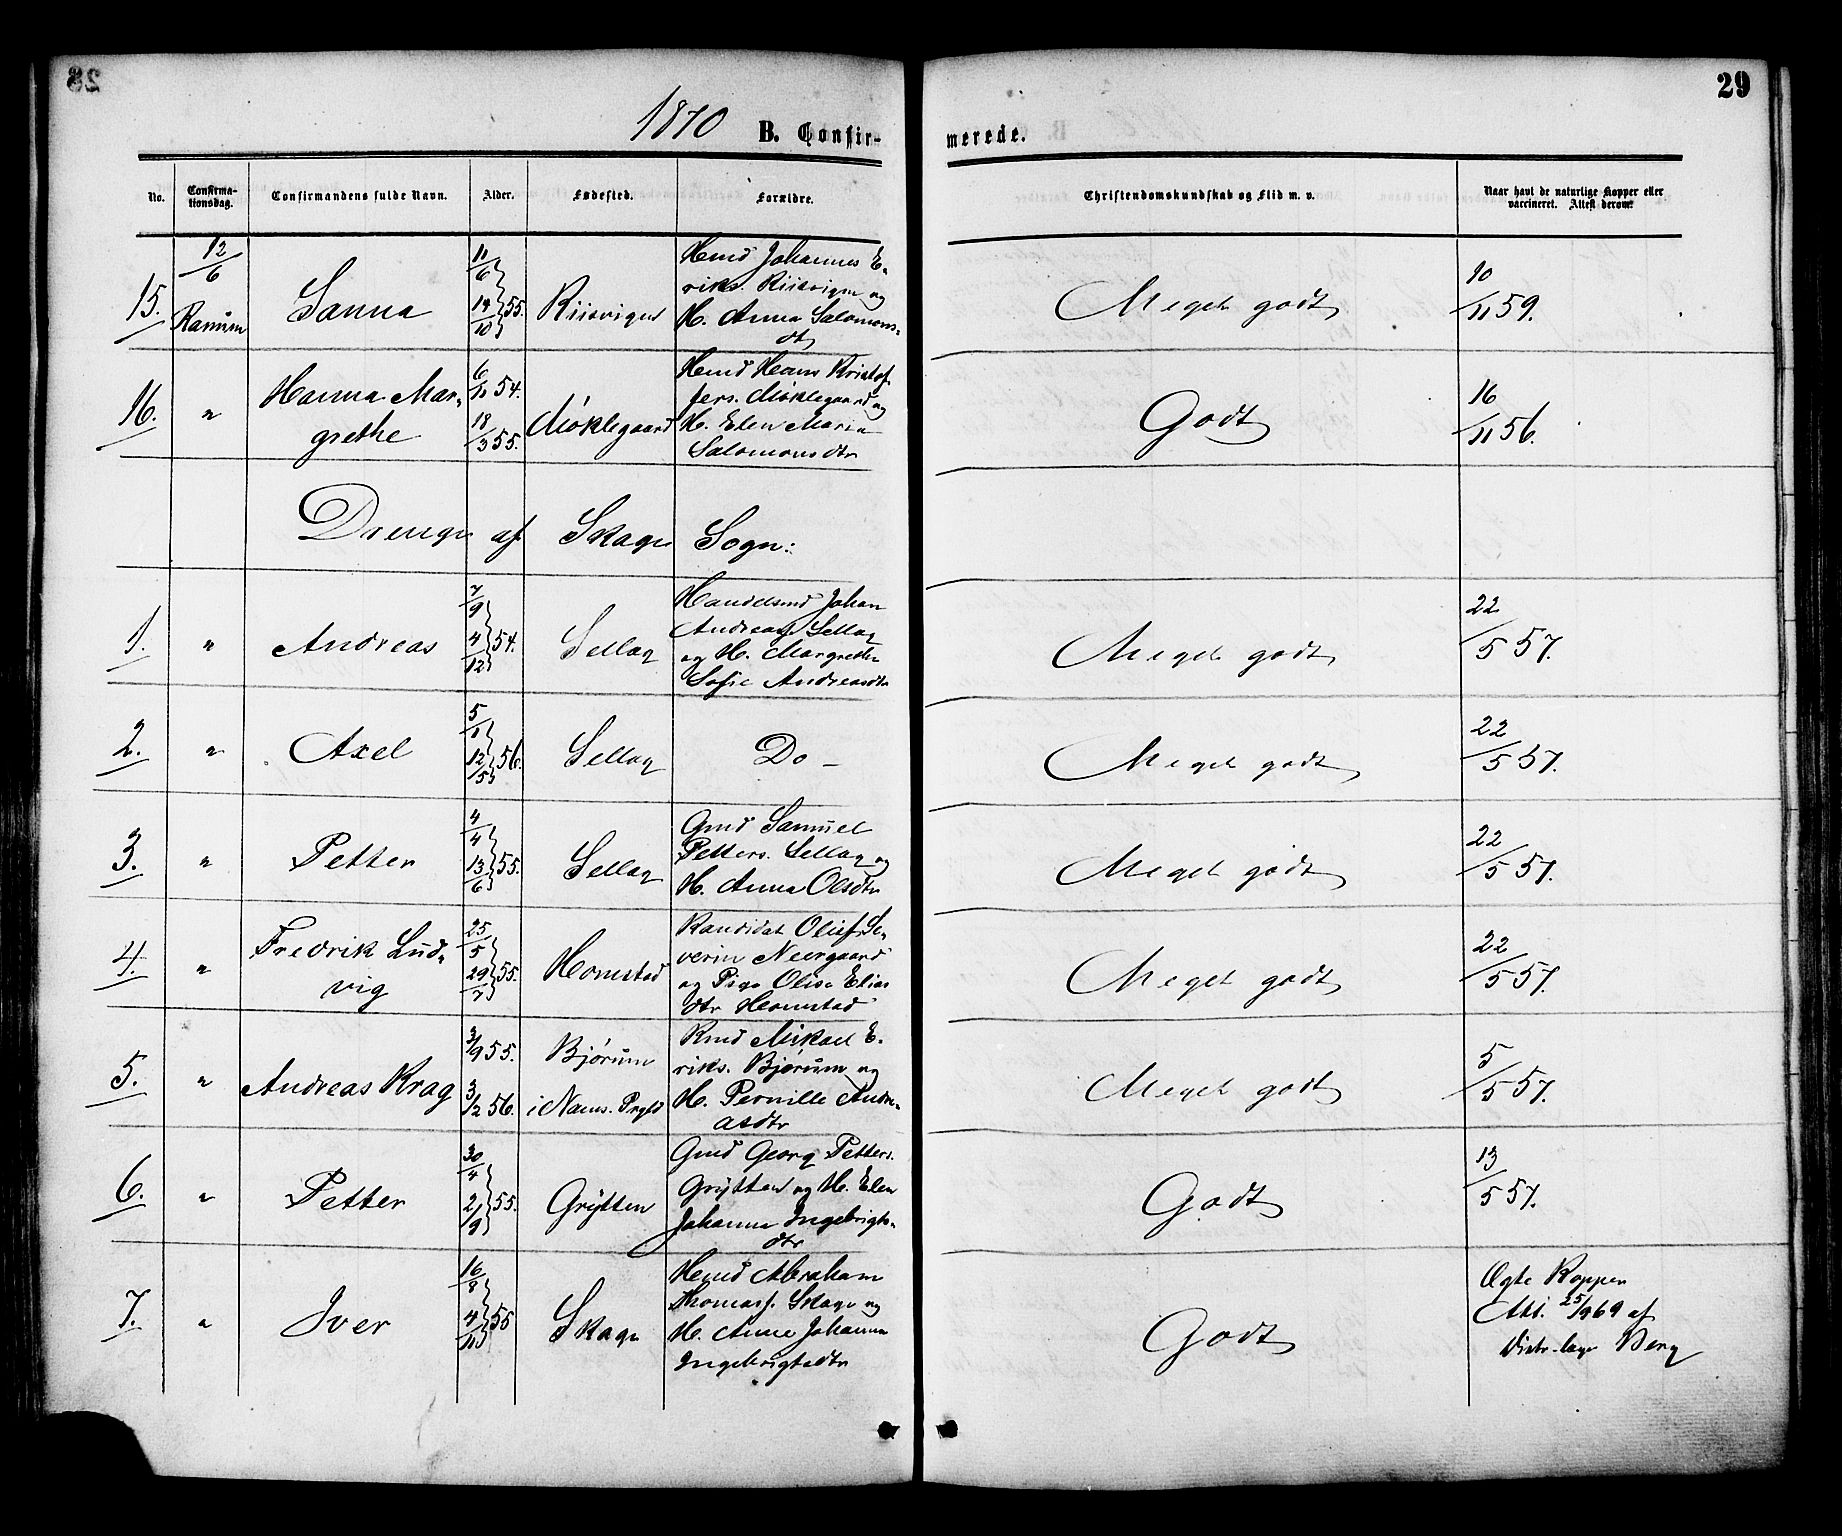 28
29
1870 B. Confir-
merede.
No.
Confirma-
tionsdag.
Confirmandens fulde Navn.
Alder.
Fødested.
Forældre.
Christendomskundskab og Flid m. v.
Naar havt de naturlige Kopper eller
vaccineret. Attest derom.
12/6
15. Ranum Sanna 11/6 14/10 55. Riisvigen
Hmd Johannes E-
riks. Riisvigen og
H. Anna Salomons-
dtr
Meget godt 10/11 59.
16. " Hanna Mar-
grethe
6/11 54.
18/3 55.
Møklegaard
Hmd Hans Kristof-
fers. Møklegaard og
H. Elen Maria
Salomonsdtr
Godt 16/11 56.
Drenge af Skage Sogn:
1. " Andreas 7/9 4/12 54. Sellæg
Handelsmd Johan
Andreas Sellæg
og H. Margrethe
Sofie Andreasdtr
Meget godt 22/5 57.
2. " Axel 5/1 12/5 56. Sellæg Do - Meget godt 22/5 57.
3. " Petter 4/4 13/6 55. Sellæg
Gmd Samuel
Petters. Sellæg og
H. Anna Olsdtr
Meget godt 22/5 57.
4. " Fredrik Lud-
vig
25/5 29/7 55. Homstad
Kandidat Oluf Se-
verin Neergaard
og Pige Olise Elias
dtr Homstad
Meget godt 22/5 57.
5. " Andreas Krag
3/9 55.
3/2 56.
Bjørum
i Nams. Prgld
Kmd Mikael E-
riks. Bjørum og
H. Pernille Andre-
asdtr
Meget godt 5/5 57.
6. " Petter 30/4 2/9 55. Grytten
Gmd Georg Petters.
Grytten og H. Elen
Johanna Ingebrigts-
dtr
Godt 13/5 57.
7. " Iver 16/8 4/11 55 Skage
Hmd Abraham
Thomass. Skage og
H. Anne Johanna
Ingebrigtsdtr
Godt
Ægte Kopper
Att. 25/9 69 af
Distr.læge Berg